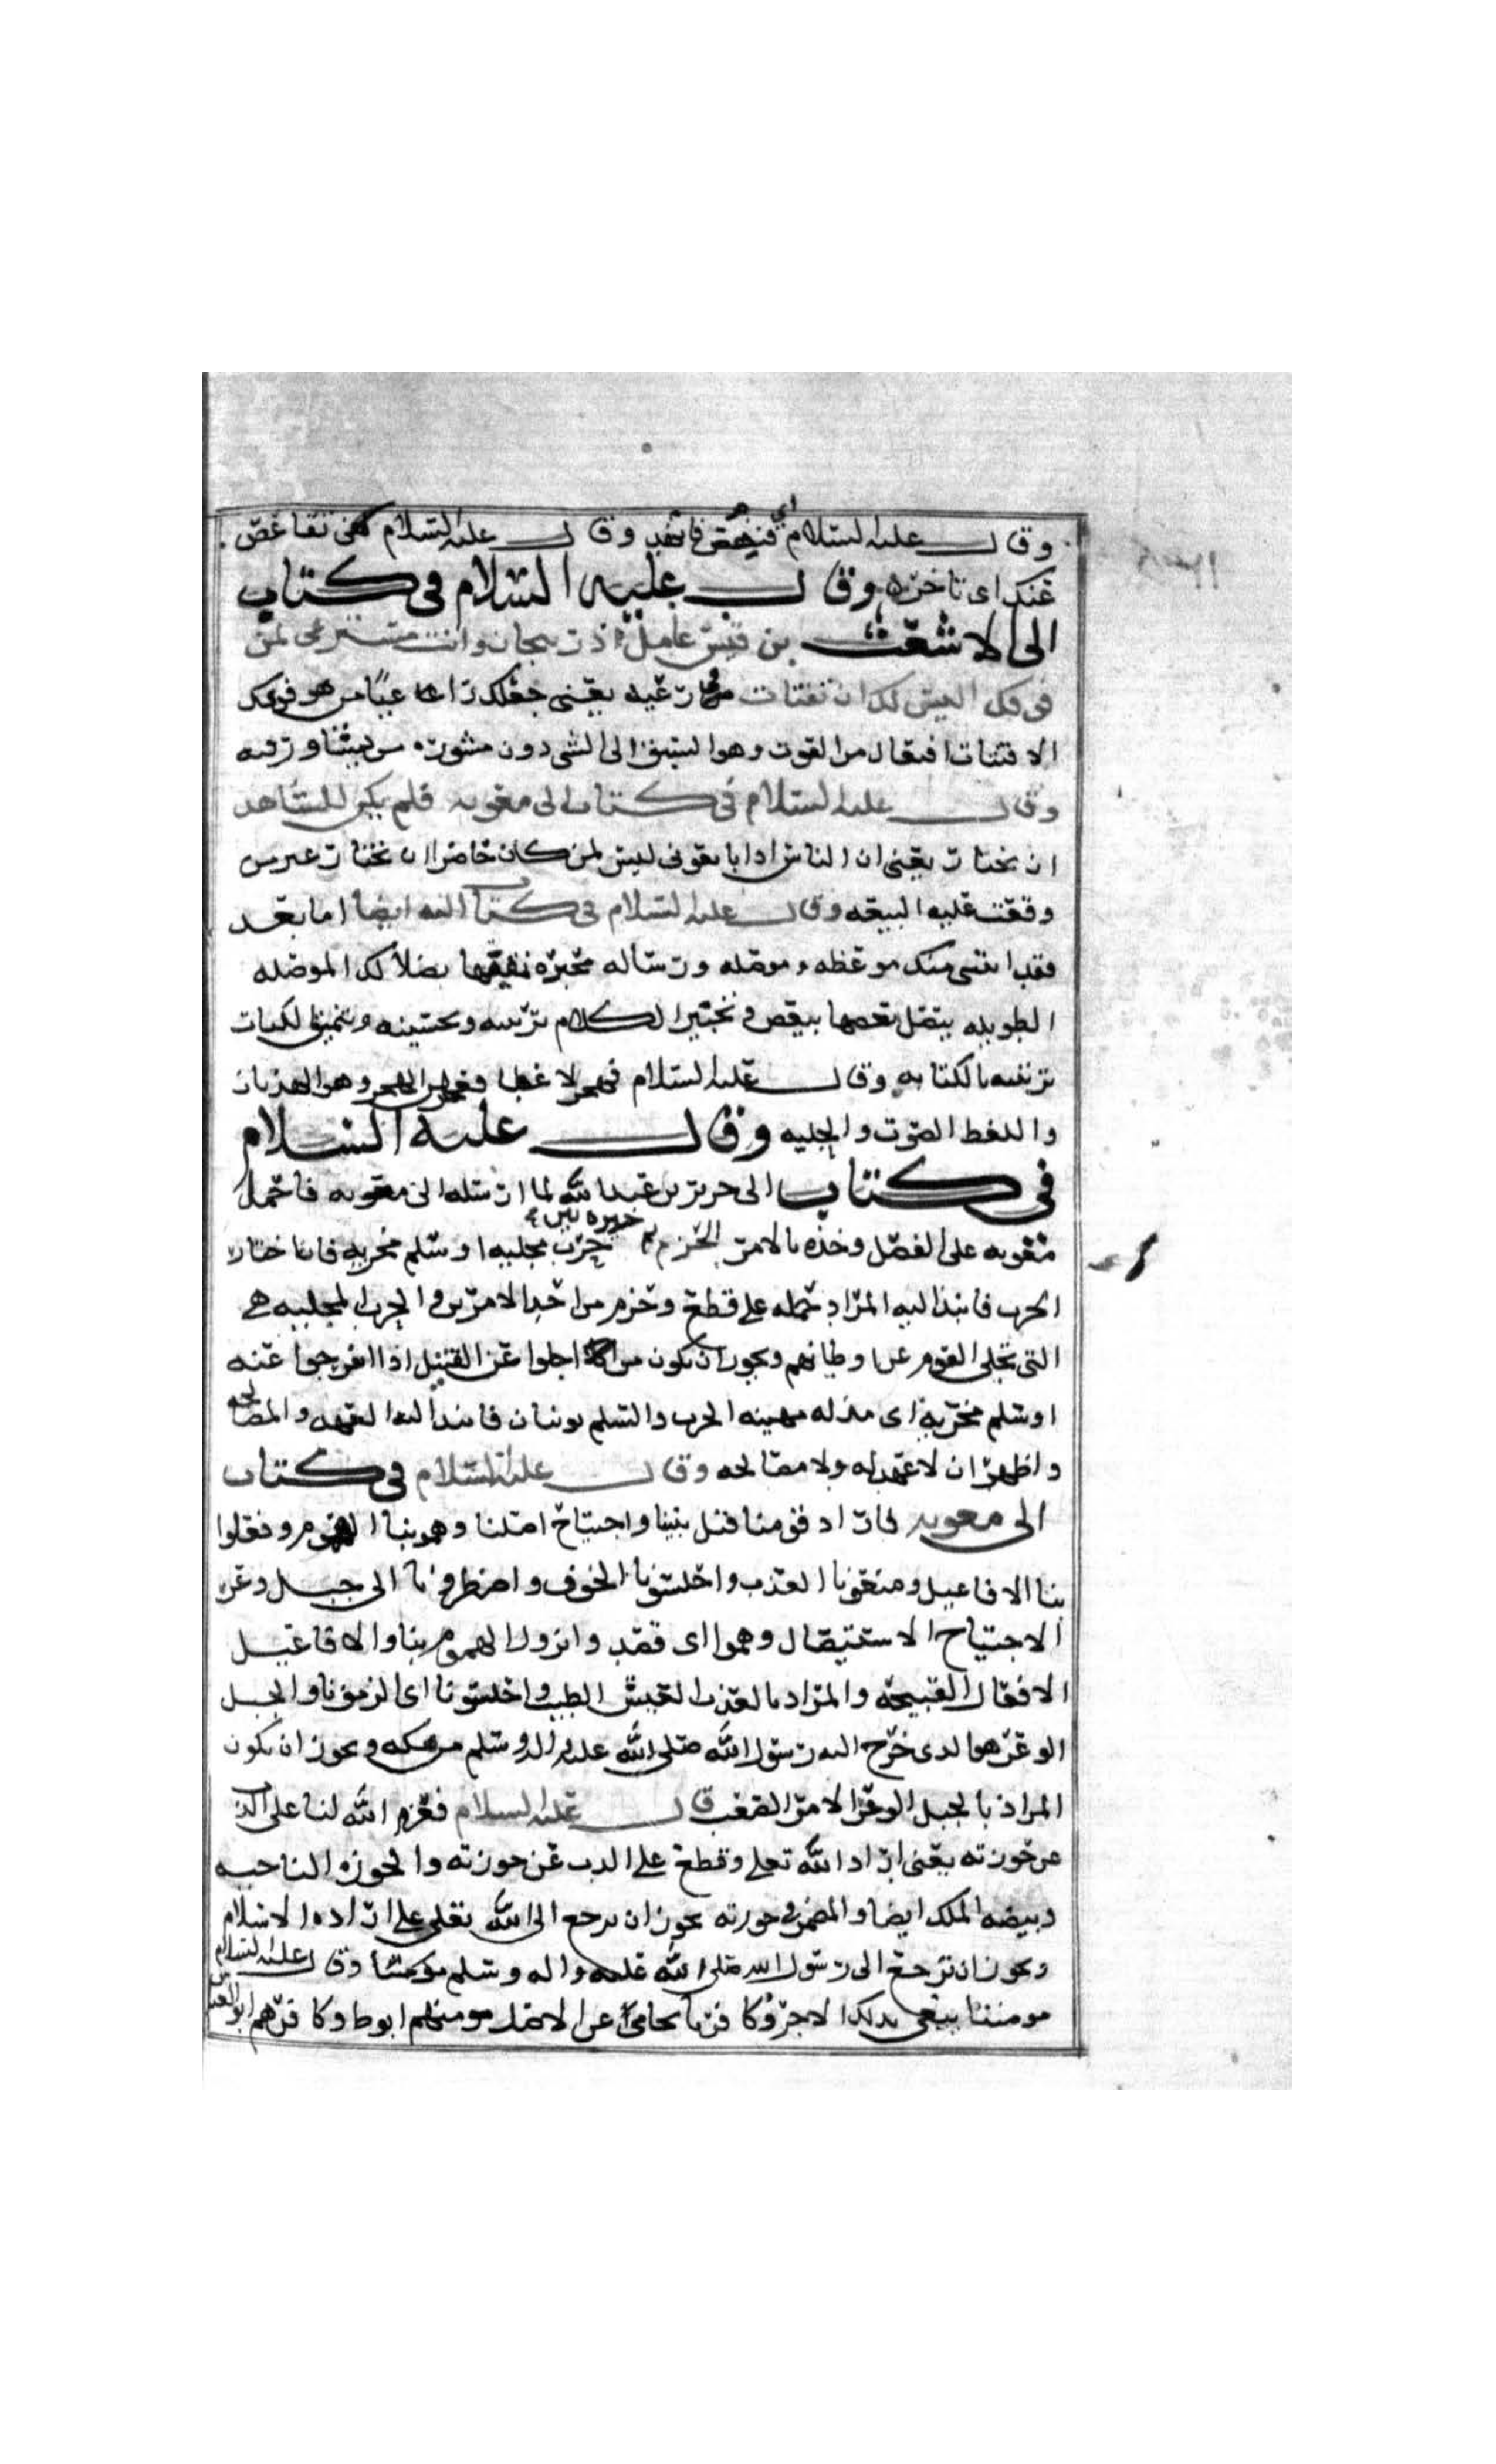 وقال عليه السلام اي فانهد وقال عليه السلام فمن تقاعص
عنك اى تاخره وقال عليه السلام في كتاب
الى الاشعث بن قيس عامل اذربيجان وانت مسترعى لمن
فوقك ليس لك ان تفتات في رعيه يعنى جعلك راعيا من هو فوقك
الافتيات افتعال من الفوت وهو السبق الى الشى دون مشورة من
وقال عليه السلام في كتاب الى معويه فلم يكن للشاهد
ان يختار يعنى ان الناس اذا بايعونى ليس لمن كان حاضرا ان يختار غير من
وقعت عليه البيعه وقال عليه السلام في كتاب اليه ايضا اما بعد
فقد اتتنى منك موعظه موصله ورساله محبره نمقتها بضلالك الموصله
الطويله يتصل بعضها ببعض وتحبير الكلام تزيينه وتحسينه وتنميق الكتاب
تزيينه بالكتابه وقال عليه السلام فهجر لاغطا وهو الهذيان
واللغط الصوت والجلبه وقال عليه السلام
في كتاب الى جرير بن عبدالله لما ارسله الى معويه فاحمل
معويه على الفصل وخذه بالامر الجزم ثم خيره بين
حرب مجليه او سلم مخزيه فان اختار
الحرب فانبذ اليه المراد حمله على قطع وجزم من احد الامرين والحرب المجليه هي
التى تجلى القوم عن اوطانهم ويجوز ان يكون من اجلوا عن القتيل اذا انفرجوا عنه
او سلم مخزيه اى مذله مهينه الحرب والسلم يونثان فانبذ اليه العهد والمصالحه
واظهر ان لا عهد له ولا مصالحه وقال عليه السلام في كتاب
الى معويه فاراد قومنا قتل نبينا واجتياح اصلنا وهموا بنا الهموم وفعلوا
بنا الافاعيل ومنعونا العذب واحلسونا الخوف واضطرونا الى جبل وعر
الاجتياح الاستيصال وهموا اى قصد وانزول الهموم بنا والافاعيل
الافعال القبيحه والمراد بالعذب العيش الطيب واحلسونا اى الزمونا والجبل
الوعر هو الذى خرج اليه رسول الله صلى الله عليه واله وسلم من مكه ويجوز ان يكون
المراد بالجبل الوعر الامر الصعب قال عليه السلام فعزم الله لنا على الذب
عن حوزته يعنى اراد الله تعلى وقطع على الذب عن حوزته والحوزه الناحيه
وبيضه الملك ايضا والمضمر في حوزته يجوز ان يرجع الى الله تعلى على اراده الاسلام
ويجوز ان ترجع الى رسول الله صلى الله عليه واله وسلم وقال عليه السلام
مومننا يبغى بذلك الاجر وكافرنا يحامى عن الاصل مومنهم ابوطا وكافرهم ابو العباس